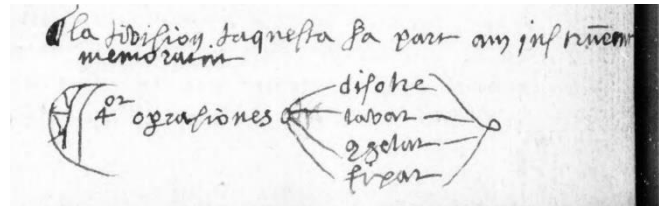 la division daquesta ſa part am inſtrumēt
memoratiu
4or opraſiones
diſolre
lavar
ꝯgelar
fixar